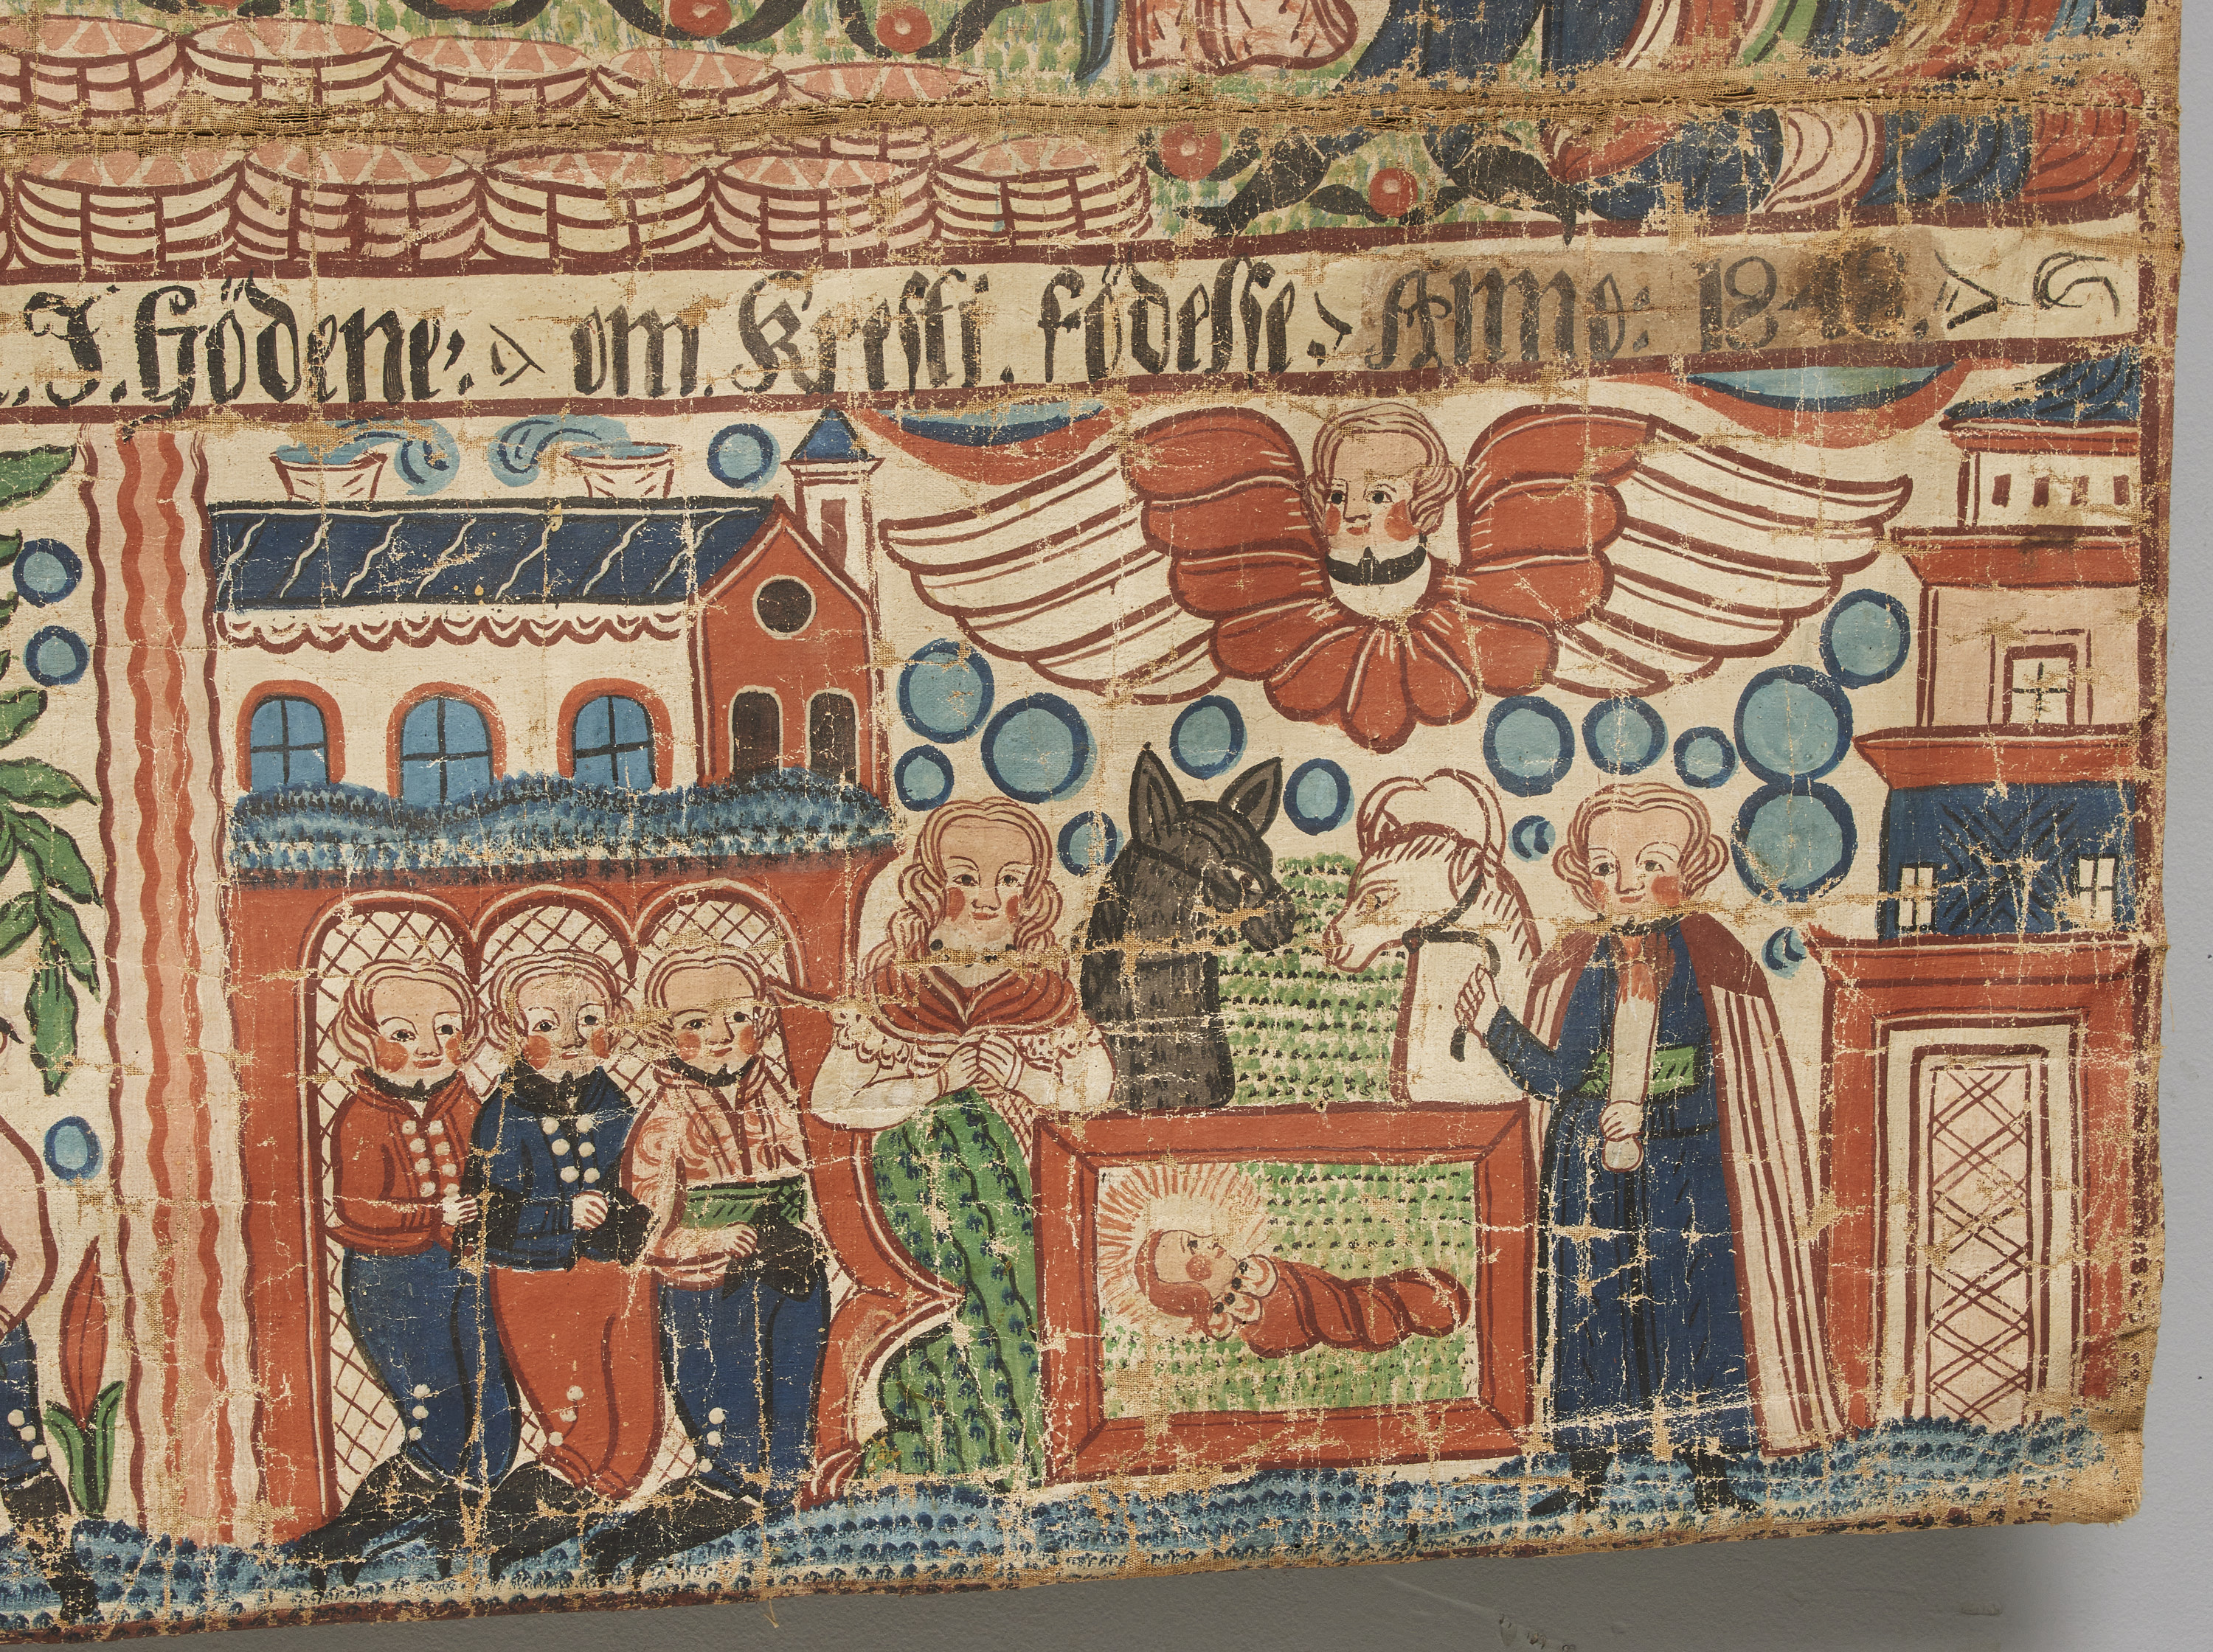 I. Gödene, om. Kresti. födelse, Anno: 18